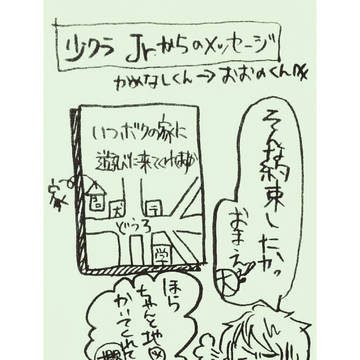 少クラ Jrからのメッセージ
かめなしくん→おおのくん
いつボクの家に
遊びに来てくれますか
家
大
どうろ
学
そんな約束したか?
おまえ
大
ほら
ちゃんと地図
かいてくれて